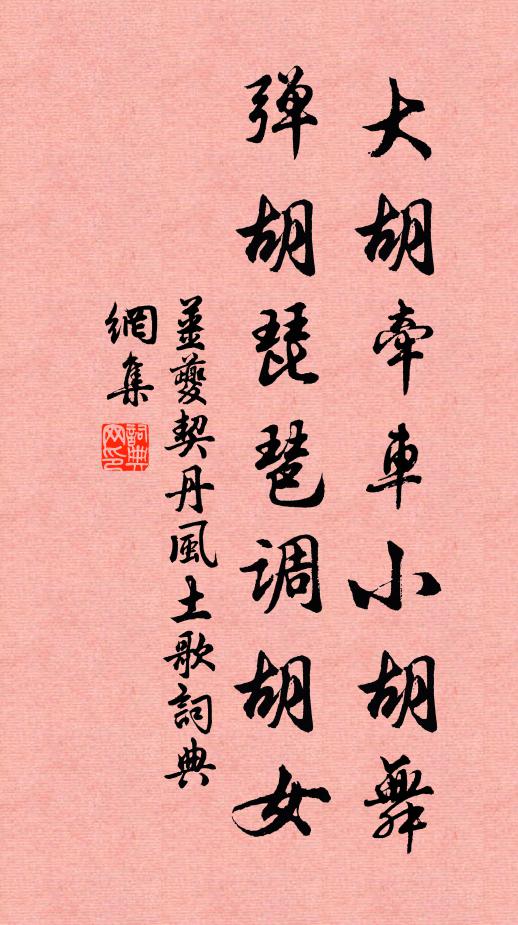 大胡牽車小胡舞
弹胡琵琶调胡女
薑夔契丹風土歌詞典
網集
詞典
网印